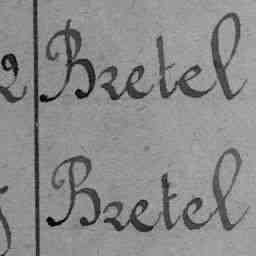 2 Bretel
Bretel